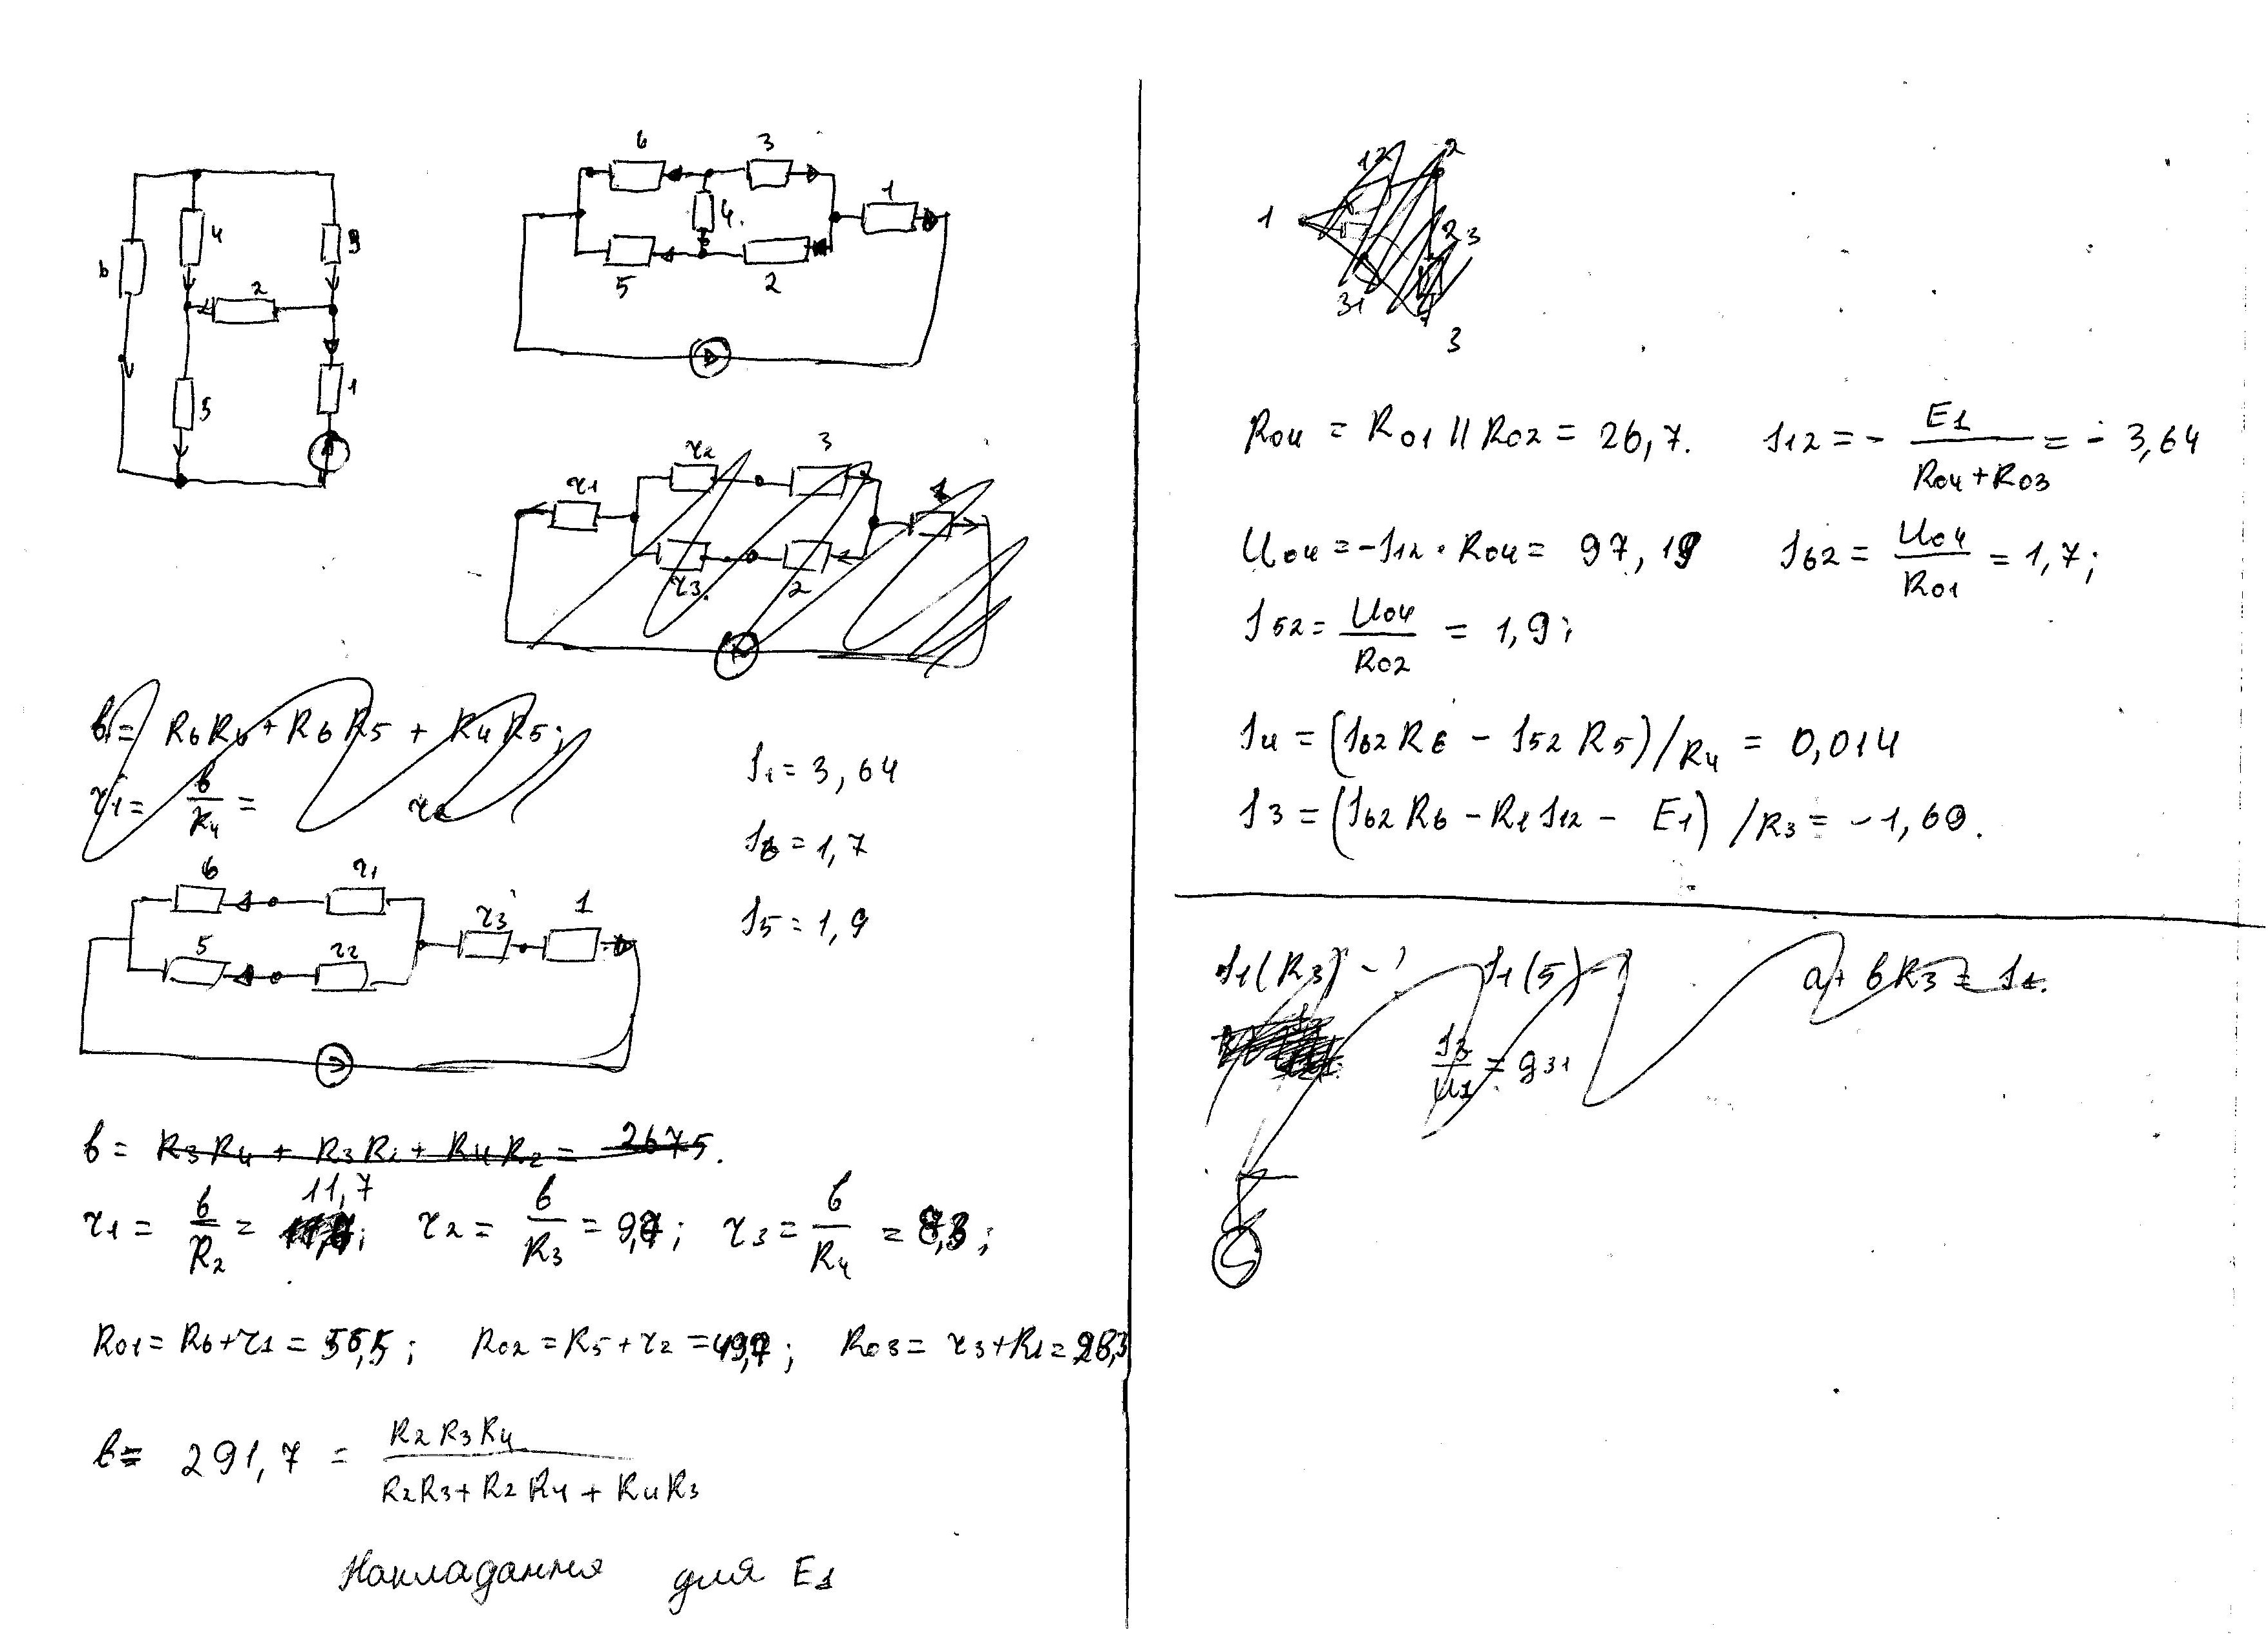 6
4
3
2
5
1
6
3
4.
1
5
2
r1
r2
3
1
r3.
2
в = R6R4 + R6R5 + R4R5;
r1 = в/R4 =
I1 = 3,64
I6 = 1,7
I5 = 1,9
6
r1
r3
1
5
r2
в = R3R4 + R3R2 + R4R2 = 2675.
r1 = в/R2 = 11,7; r2 = в/R3 = 9,7; r3 = в/R4 = 8,3;
R01 = R6+r1 = 56,5; R02 = R5+r2 = 49,7; R03 = r3+R1 = 28,3
в = 291,7 = R2R3R4/(R2R3+R2R4+R4R3)
Накладання для E1
12
2
1
23
31
3
R04 = R01 || R02 = 26,7. I12 = - E1/(R04+R03) = - 3,64
U04 = -I12 · R04 = 97,19 I62 = U04/R01 = 1,7;
I52 = U04/R02 = 1,9;
I4 = (I62R6 - I52R5)/R4 = 0,014
I3 = (I62R6 - R1I12 - E1)/R3 = -1,69.
I1(R3) - I1(5) - a + вR3 = I1.
I3/U1 = g31